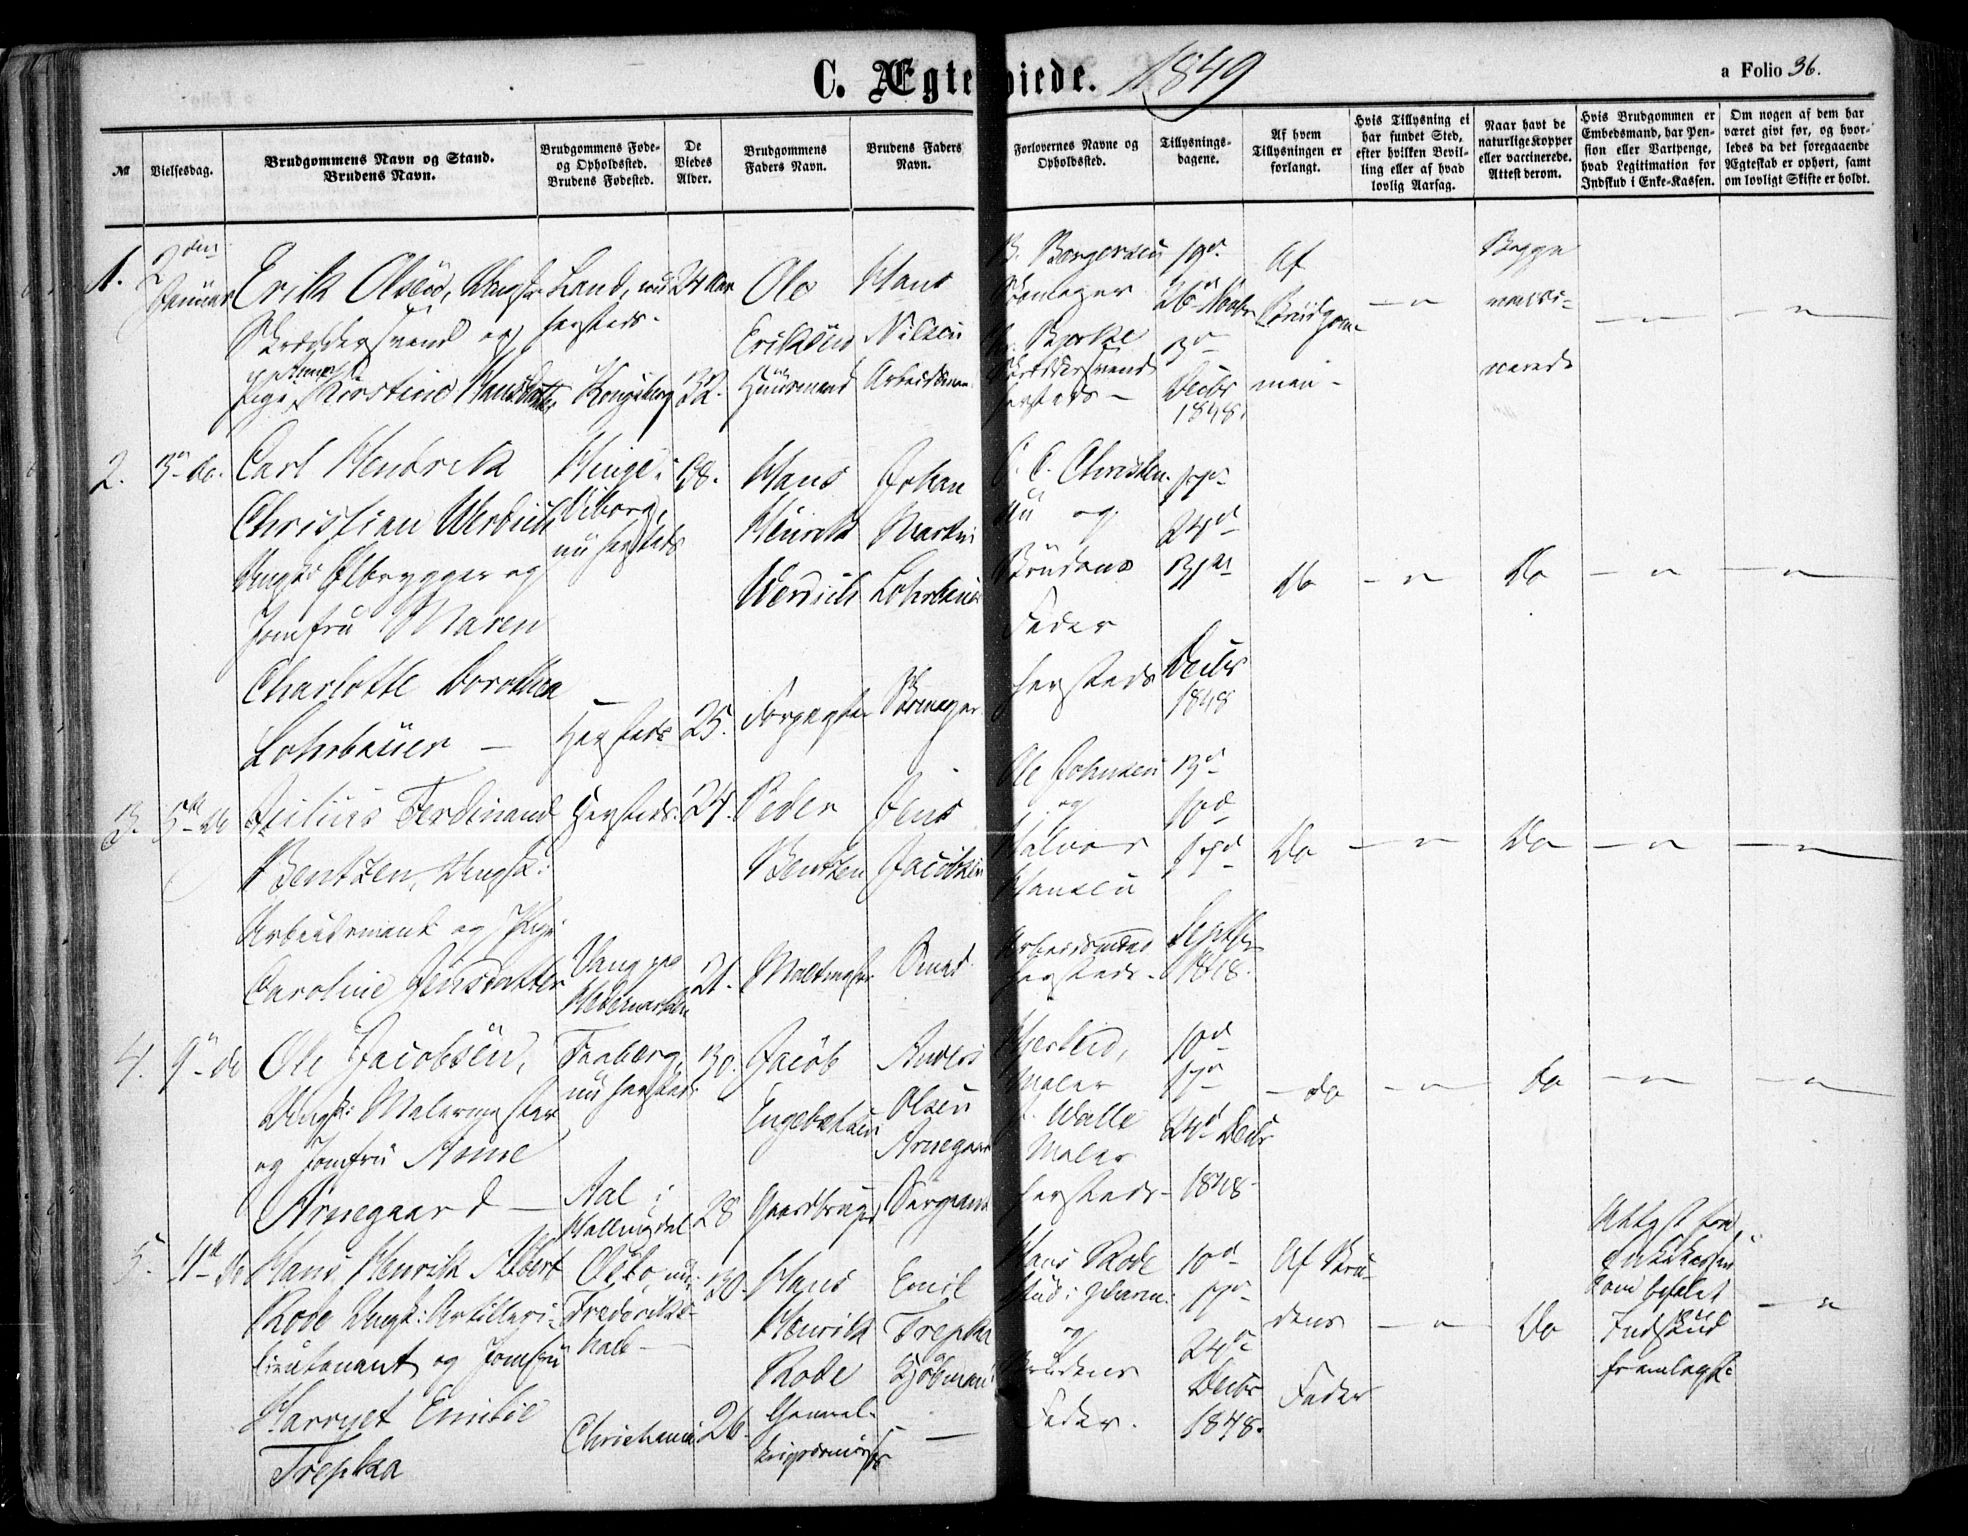 C. Ægteviede. 1849
a Folio 36.
№
Vielsesdag.
Brudgommens Navn og Stand.
Brudens Navn.
Brudgommens Føde-
og Opholdssted.
Brudens Fødested.
De
Viedes
Alder.
Brudgommens
Faders Navn.
Brudens Faders
Navn.
Forlovernes Navne og
Opholdssted.
Tillysnings-
dagene.
Af hvem
Tillysningen er
forlangt.
Hvis Tillysning ei
har fundet Sted,
efter hvilken Bevil-
ling eller af hvad
lovlig Aarsag.
Naar havt de
naturlige Kopper
eller vaccinerede.
Attest derom.
Hvis Brudgommen er
Embedsmand, har Pen-
sion eller Vartpenge,
hvad Legitimation for
Indskud i Enke-Kassen.
Om nogen af dem har
været givt før, og hvor-
ledes da det foregaaende
Ægteskab er ophørt, samt
om lovligt Skifte er holdt.
1.
2den
Januar
Erik Olsen, Ungk.
Skræddersvend og
Pige Kirstine Hansdatter
Land, nu
hersteds.
Kongsberg
24 Aar
32.
Ole
Eriksen
Huusmand
Hans
Nilsen
Arbeidsman
B. Borgersen
Skomager
Bjerke
Skræddersvend
hersteds
19d
26d Novbr
3d
Decbr
1848.
Af
Brudgom-
men
— " —
Begge
vacci-
nerede
— " —
— " —
2.
3d do.
Carl Hendrik
Christian Werdich
Ungk: Ølbrygger og
Jomfru Maren
Charlotte Dorothea
Lohrbauer —
Hinge i
Viborg,
nu hersteds
Hersteds
38.
25.
Hans
Henrik
Werdich
Forpagter
Johan
Martin
Lohrbauer
Skomager
C. C. Christen-
sen og
Brudens
Fader
hersteds
17d
24d
31d
Decbr
1848
do
— " —
Do
— " —
— " —
3.
5d do
Julius Ferdinand
Bentzen, Ungk:
Arbeidsmand og Pige
Caroline Jensdatter
Hersteds
Vang paa
Hedemarken
24.
21.
Peder
Bentzen
Jens
Jacobsen
Smed
Ole Johnsen
og
Halvor
Hansen
Arbeidsmænd
hersteds
3d
10d
17d
Septbr
1848.
Do
— " —
Do
— " —
— " —
4.
9d do
Ole Jacobsen,
Ungk: Malermester
og Jomfru Anne
Arnegaard —
Faaberg,
nu hersteds
Aal i
Hallingdal
30.
28
Jacob
Engebretsen
Gaardbruger
Anders
Olsen
Arnegaard
Sergeant
Maler
Walle
Maler
hersteds
10d
17d
24d Decbr
1848
do
— " —
do
— " —
— " —
5.
4d do
Hans Henrik Albert
Rode Ungk: Artilleri-
lieutenant og Jomfru
Harryet Emilie
Trepka
Oslo, nu
Frederiks-
hald —
Christiania
30.
26.
Hans
Henrik
Rode
General-
krigscommissær
Emil
Trepka
Kjøbmand
—
Hans Rode
Stud:
og
Brudens
Fader.
10d
17d
24d
Decbr
1848.
Af Bru-
dens
Fader
— " —
Do
Attest fra
Enkekassen
om betalt
Indskud
fremlagt.
— " —